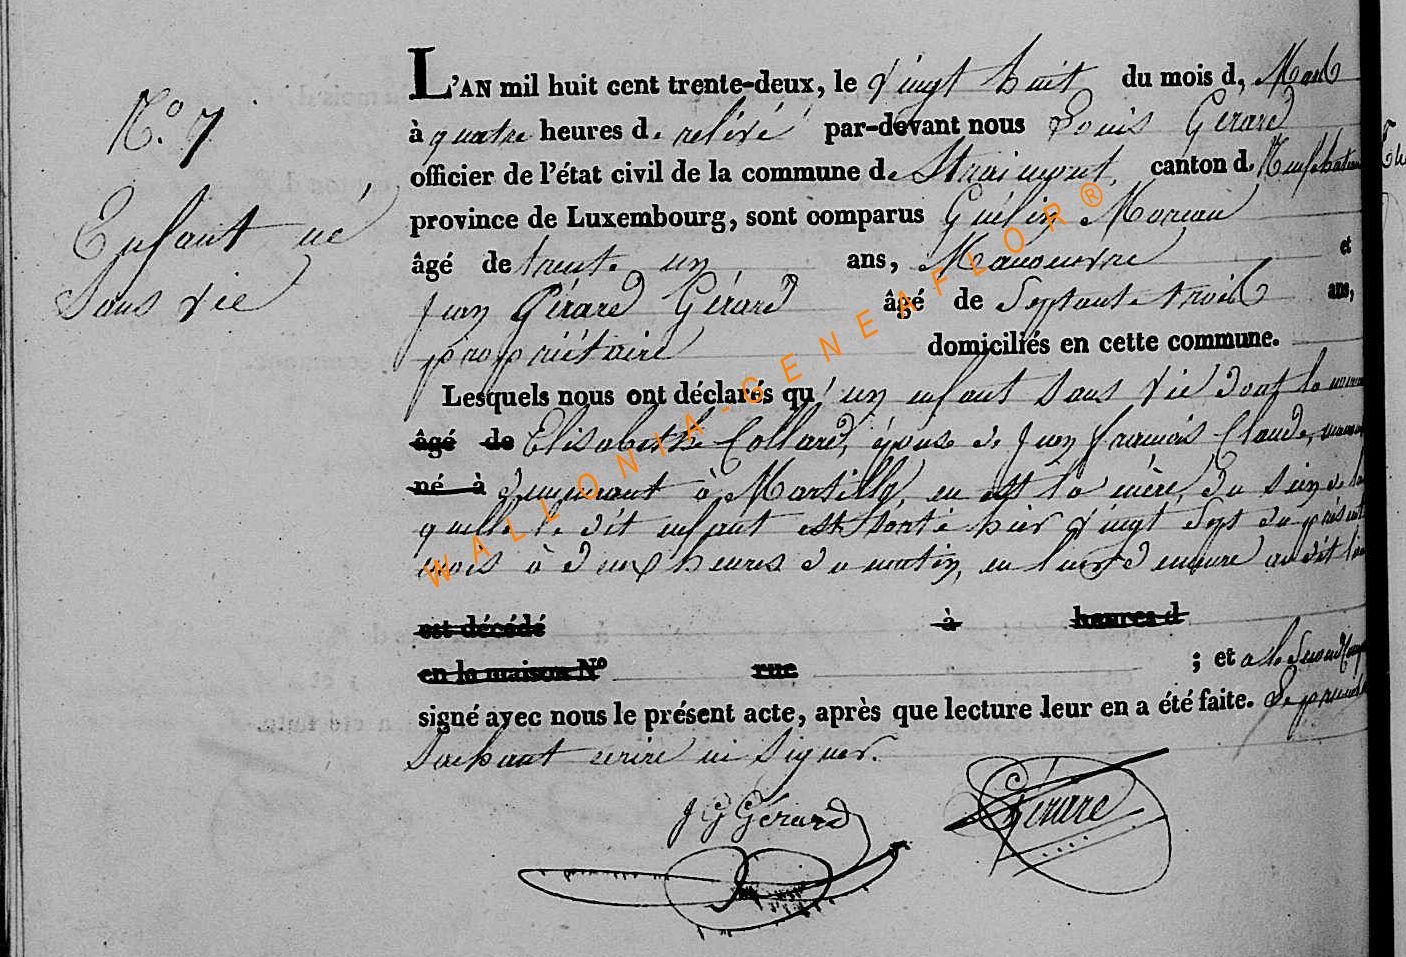 N.° 7
Enfant né
Sans vie
L'AN mil huit cent trente-deux, le vingt huit du mois d, Mars
à quatre heures d. relevé par-devant nous Louis Gérard
officier de l'état civil de la commune de Straimont, canton d. Neufchateau
province de Luxembourg, sont comparus Guélin Moreau
âgé de trente un ans, Manoeuvre et
Jean Gérard Gérard âgé de Septante trois ans,
propriétaire domiciliés en cette commune.
Lesquels nous ont déclarés qu'un enfant Sans vie dont la
âgé de Elisabethe Collard, épouse de Jean françois Claude,
né à demeurant à Martilly, en est la mère, du sein de la
quelle le dit enfant est Sorti hier vingt Sept du présent
mois à deux heures du matin, en leur demeure au dit lieu
est décédé à heures d
en la maison N° rue ; et a le Second
signé avec nous le présent acte, après que lecture leur en a été faite. Le premier
Sachant écrire ni Signer.
J G Gérard Gérard
WALLONIA-GENEAFLOR®